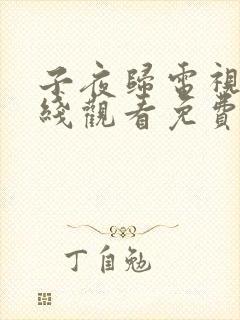 子夜歸電視
綫觀看免費
丁自勉